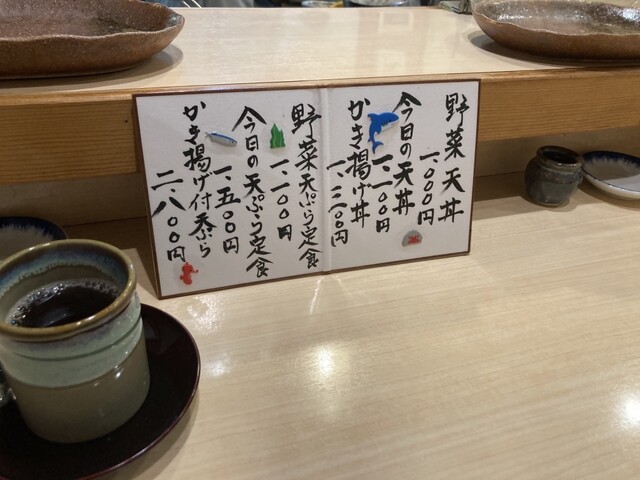 野菜天丼
一、〇〇〇円
今日の天丼
一、一〇〇円
かき揚げ丼
一、二〇〇円
野菜天ぷら定食
一、一〇〇円
今日の天ぷら定食
一、五〇〇円
かき揚げ付天ぷら
二、八〇〇円